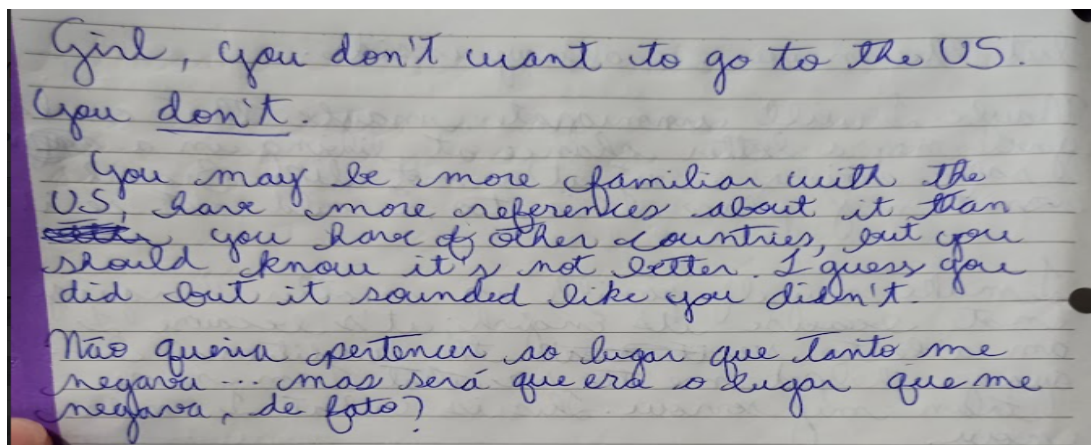 Girl, you don't want to go to the US.
You don't.
You may be more familiar with the
US, have more references about it than
you have of other countries, but you
should know it's not better. I guess you
did but it sounded like you didn't.
Não queria pertencer ao lugar que tanto me
negava... mas será que era o lugar que me
negava, de fato?